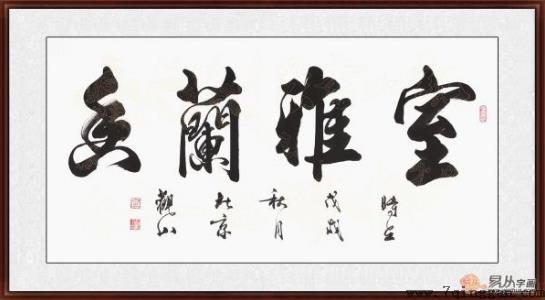 室雅蘭香
時在
戊戌
秋月
於京
觀山
易从字画